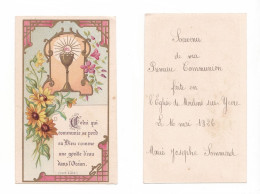 Celui qui
communie se perd
en Dieu comme
une goutte d'eau
dans l'Océan.
Souvenir
de ma
Première Communion
faite en
l'Eglise de
le 16 mai
Marie Josephe